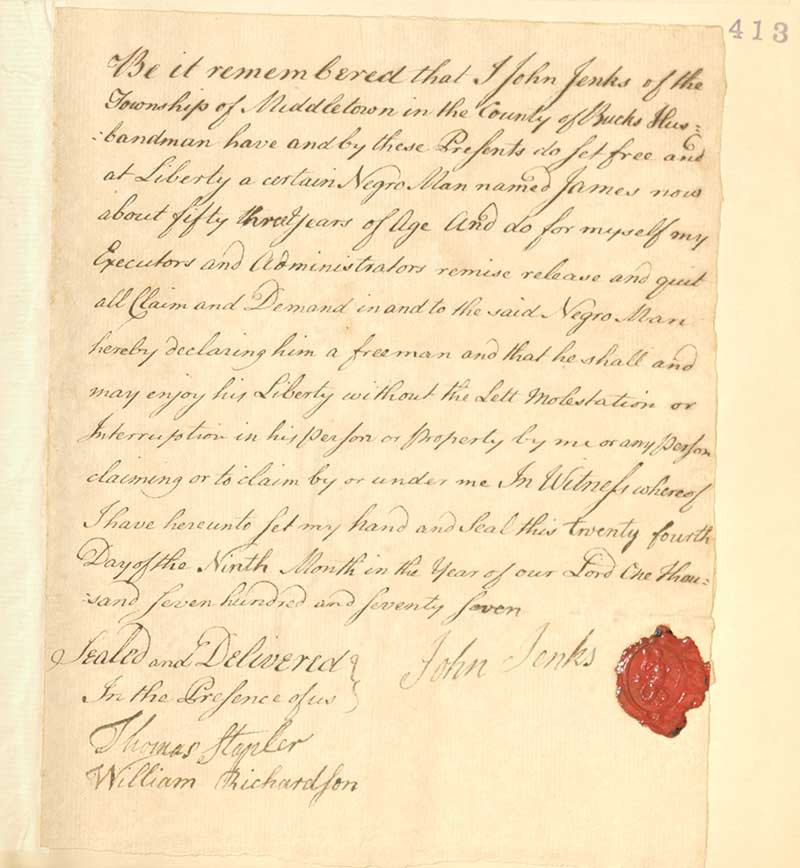 413
Be it remembered that I John Jenks of the
Township of Middletown in the County of Bucks Hus=
=bandman have and by these Presents do set free and
at Liberty a certain Negro Man named James now
about fifty three Years of Age And do for myself my
Executors and Administrators remise release and quit
all Claim and Demand in and to the said Negro Man
hereby declaring him a freeman and that he shall and
may enjoy his Liberty without the Lett Molestation or
Interruption in his Person or Property by me or any Person
claiming or to claim by or under me In Witness whereof
I have hereunto set my hand and Seal this twenty fourth
Day of the Ninth Month in the Year of our Lord One Thou=
=sand seven hundred and seventy seven
Sealed and Delivered
In the Presence of us
John Jenks
Thomas Stapler
William Richardson